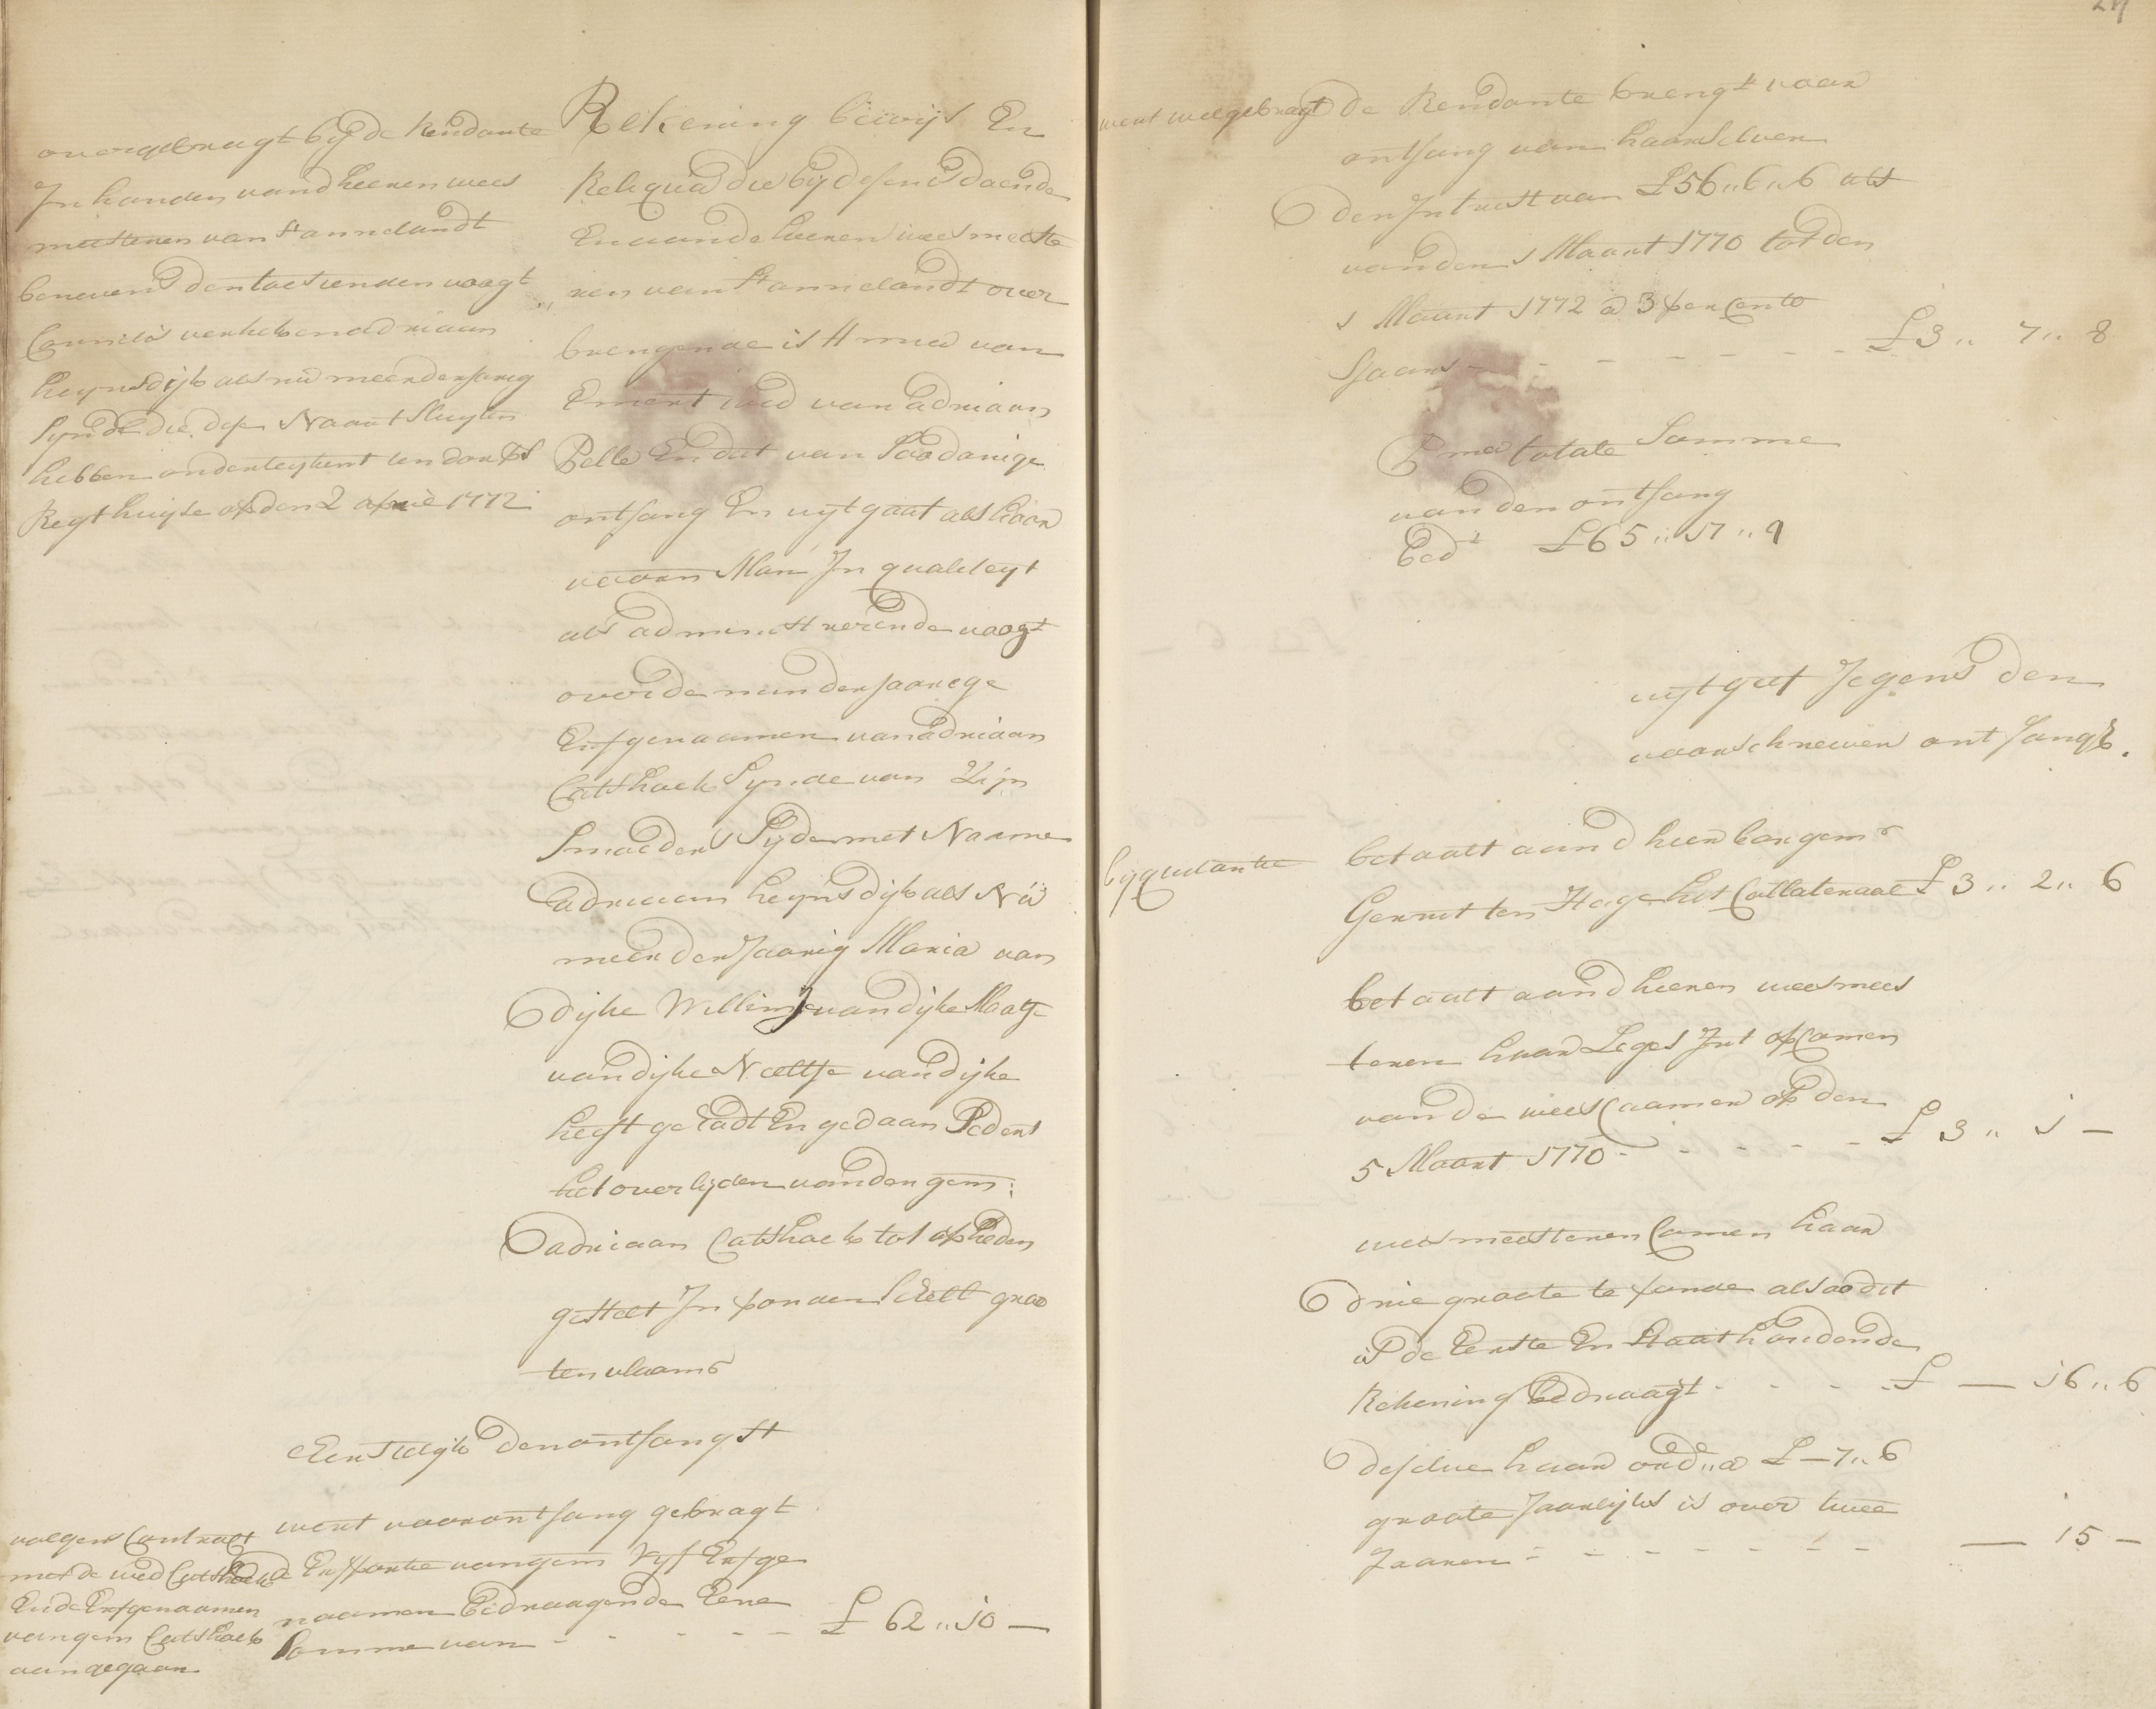 overgebragt bijde Rendante
In handen vand heeren wees
meesteren van St annelandt
benevens den toesienden voogt
Cornelis verhek en adriaan
heijnsdijk als nu meerderjarig
sijnde die dese Naar't sluijten
hebben onderteijkent ten dorps
Regthuijse opden 2 april 1772
Rekening bewijs En
Reliqua die bij desen is doende
En aan de heeren wees meeste
ren van St annelandt over
brengende is
wed van adriaan
Pelle En dat van soodanige
ontfang En uijtgaat als haar
voorn Man In qualiteijt
als administreerende voogt
over de minderjaarige
Erfgenaamen van adriaan
Catshoek sijnde van Zijn
smoeders sijde met Naame
adriaan heijnsdijk als Nu
meerderjaarig Maria van
dijke Willim van dijke Maatje
van dijke Neeltje van dijke
heeft gehadt En gedaan Sedert
het overlijden van den gem:
adriaan Catshoek tot op heden
gestelt In ponden schell groo
ten vlaams
Eerstelijk den ontfangst
wert voor ontfang gebragt
de Erfportie van gem vijf Erfge
naamen Bedraagende Eene
Somme van - - - - - £ 62 ,, 10 —
volgens Contract
met de wed Catshoek
En de Erfgenaamen
van gem Catshoek
aangegaan
24
wert meegebragt
de Rendante brengt voor
ontfang van haar selven
den Intrest van £ 56 ,, 6 ,, 6 als
van den 1 Maart 1770 tot den
1 Maart 1772 a 3 per Cento
sjaars - - - - - - - £ 3 ,, 7 ,, 8
totale Somme
van den ontfang
Bed £ 65 ,, 17 ,, 9
uijtgeef Jegens den
voorschreven ontfangst.
bij quitantie
betaalt aan d heer borgemr
Gerrit ten Hage het Collateraal £ 3 ,, 2 ,, 6
betaalt aan d heeren weesmees
teren haar Leges Int opCamen
van de wees Caamer op den
5 Maart 1770 - - - - - £ 3 ,, 1 —
weesmeesteren Comen haar
drie groote te ponde alsoo dit
is de Eerste En Staat houdende
Rekening Bedraagt - - - - £ — 16 ,, 6
deselve haar ord ,, a £ — 7 ,, 6
groote Jaarlijks is over twee
Jaaren - - - - - - - — 15 —